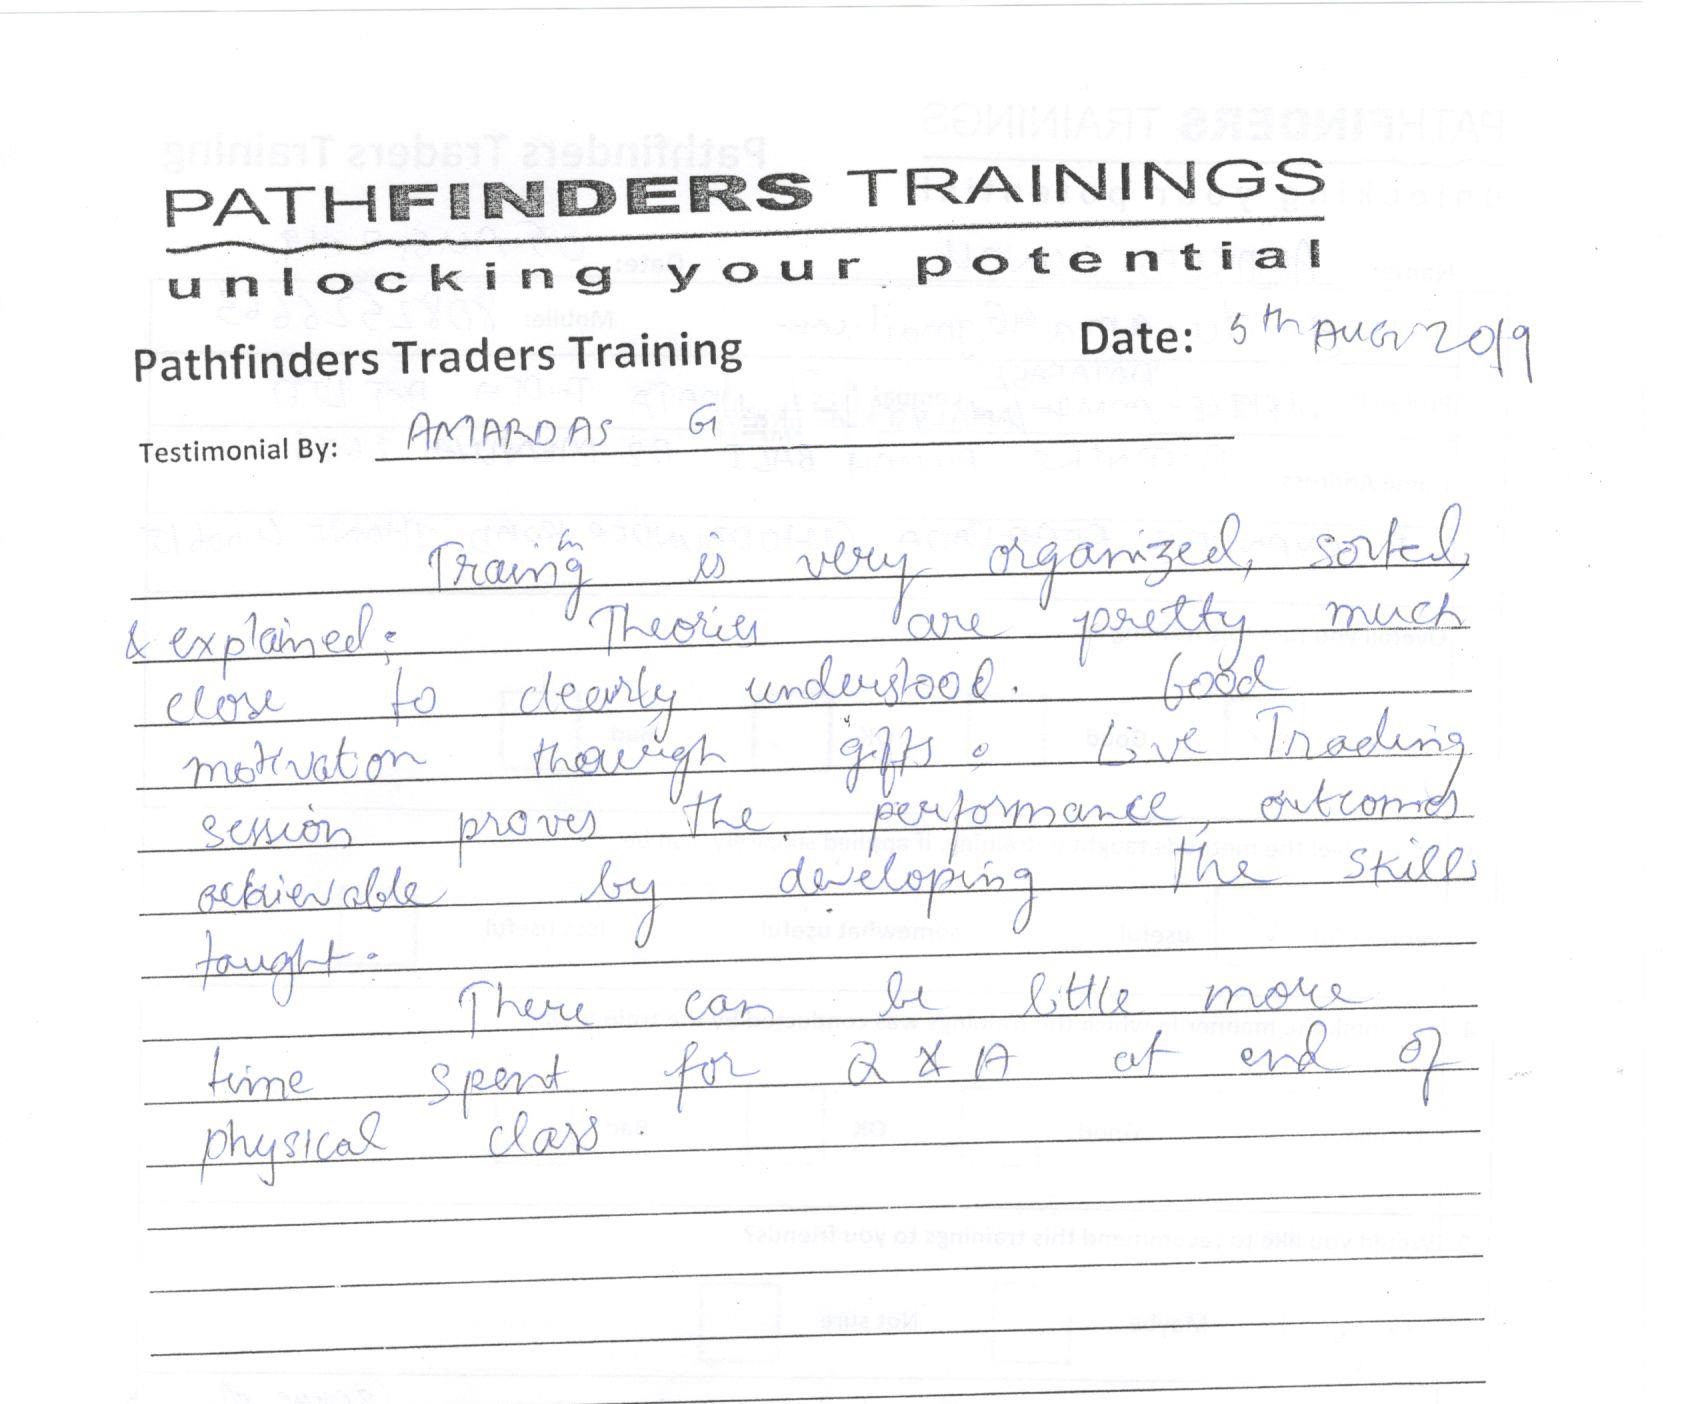 PATHFINDERS TRAININGS
unlocking your potential
Pathfinders Traders Training
Date: 5th AUG 2019
Testimonial By: AMARDAS G
Training is very organized, sorted,
& explained. Theories are pretty much
close to clearly understood. Good
motivation through gifts. Live Trading
session proves the performance, outcomes
achievable by developing the skills
taught.
There can be little more
time spent for Q & A at end of
physical class.